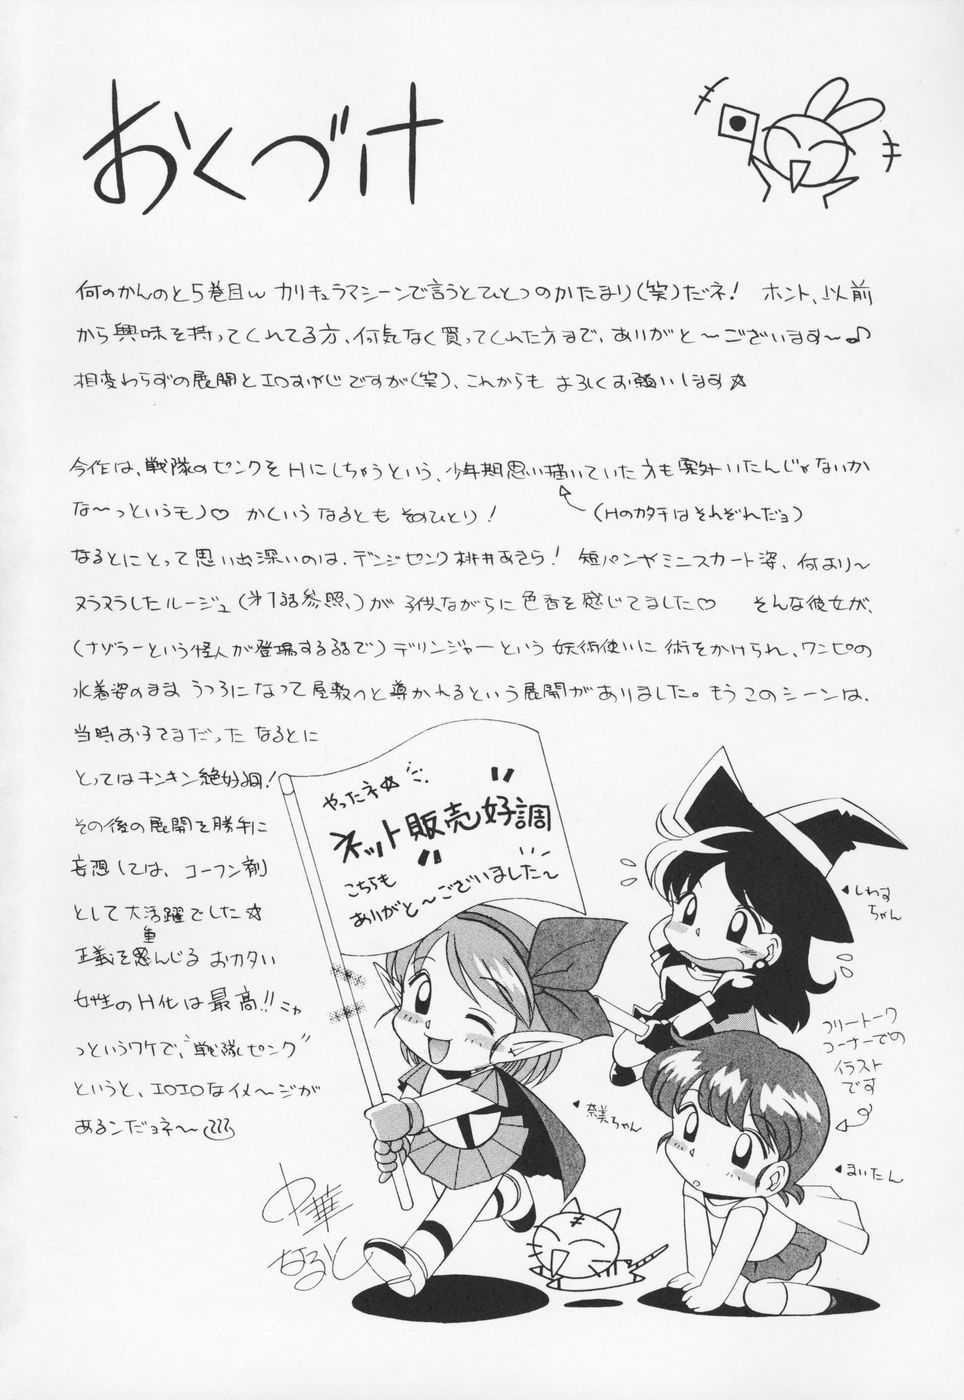 おくづけ
何のかんのと5巻目w カリキュラマシーンで言うとひとつのかたまり(笑)だネ! ホント、以前
から興味を持ってくれてる方、何気なく買ってくれた方まで、ありがと〜ございます〜♪
相変わらずの展開とエロすじですが(笑)、これからも よろしくお願いします☆
今作は、戦隊のピンクをHにしちゃうという、少年期思い描いていた方も案外いたんじゃないか
な〜っというモノ♡ かくいう なるとも そのひとり!
(Hのカタチはそれぞれだョ)
なるとにとって思い出深いのは、デンジピンク桃井あきら! 短パンやミニスカート姿、何より〜
ヌラヌラしたルージュ(第1話参照、)が 子供ながらに 色香を感じてました♡ そんな彼女が、
(ナゾラーという怪人が登場する話で)デリンジャーという 妖術使いに 術をかけられ、ワンピの
水着姿のまま うつろになって 屋敷へと 導かれるという 展開がありました。もう このシーンは、
当時お子さまだった なるとに
とってはキンキン絶好調!
その後の展開を勝手に
妄想しては、コーフン剤
として大活躍でした☆
正義を重んじる おカタい
女性のH化は最高!! ニャ
っというワケで、“戦隊ピンク”
というと、エロエロなイメ〜ジが
あるンだョネ〜
やったネ☆
"ネット販売好調"
こちらも
ありがと〜ございました〜
しわす
ちゃん
フリートーク
コーナーでの
イラスト
です
奈美ちゃん
まいたん
中華
なると